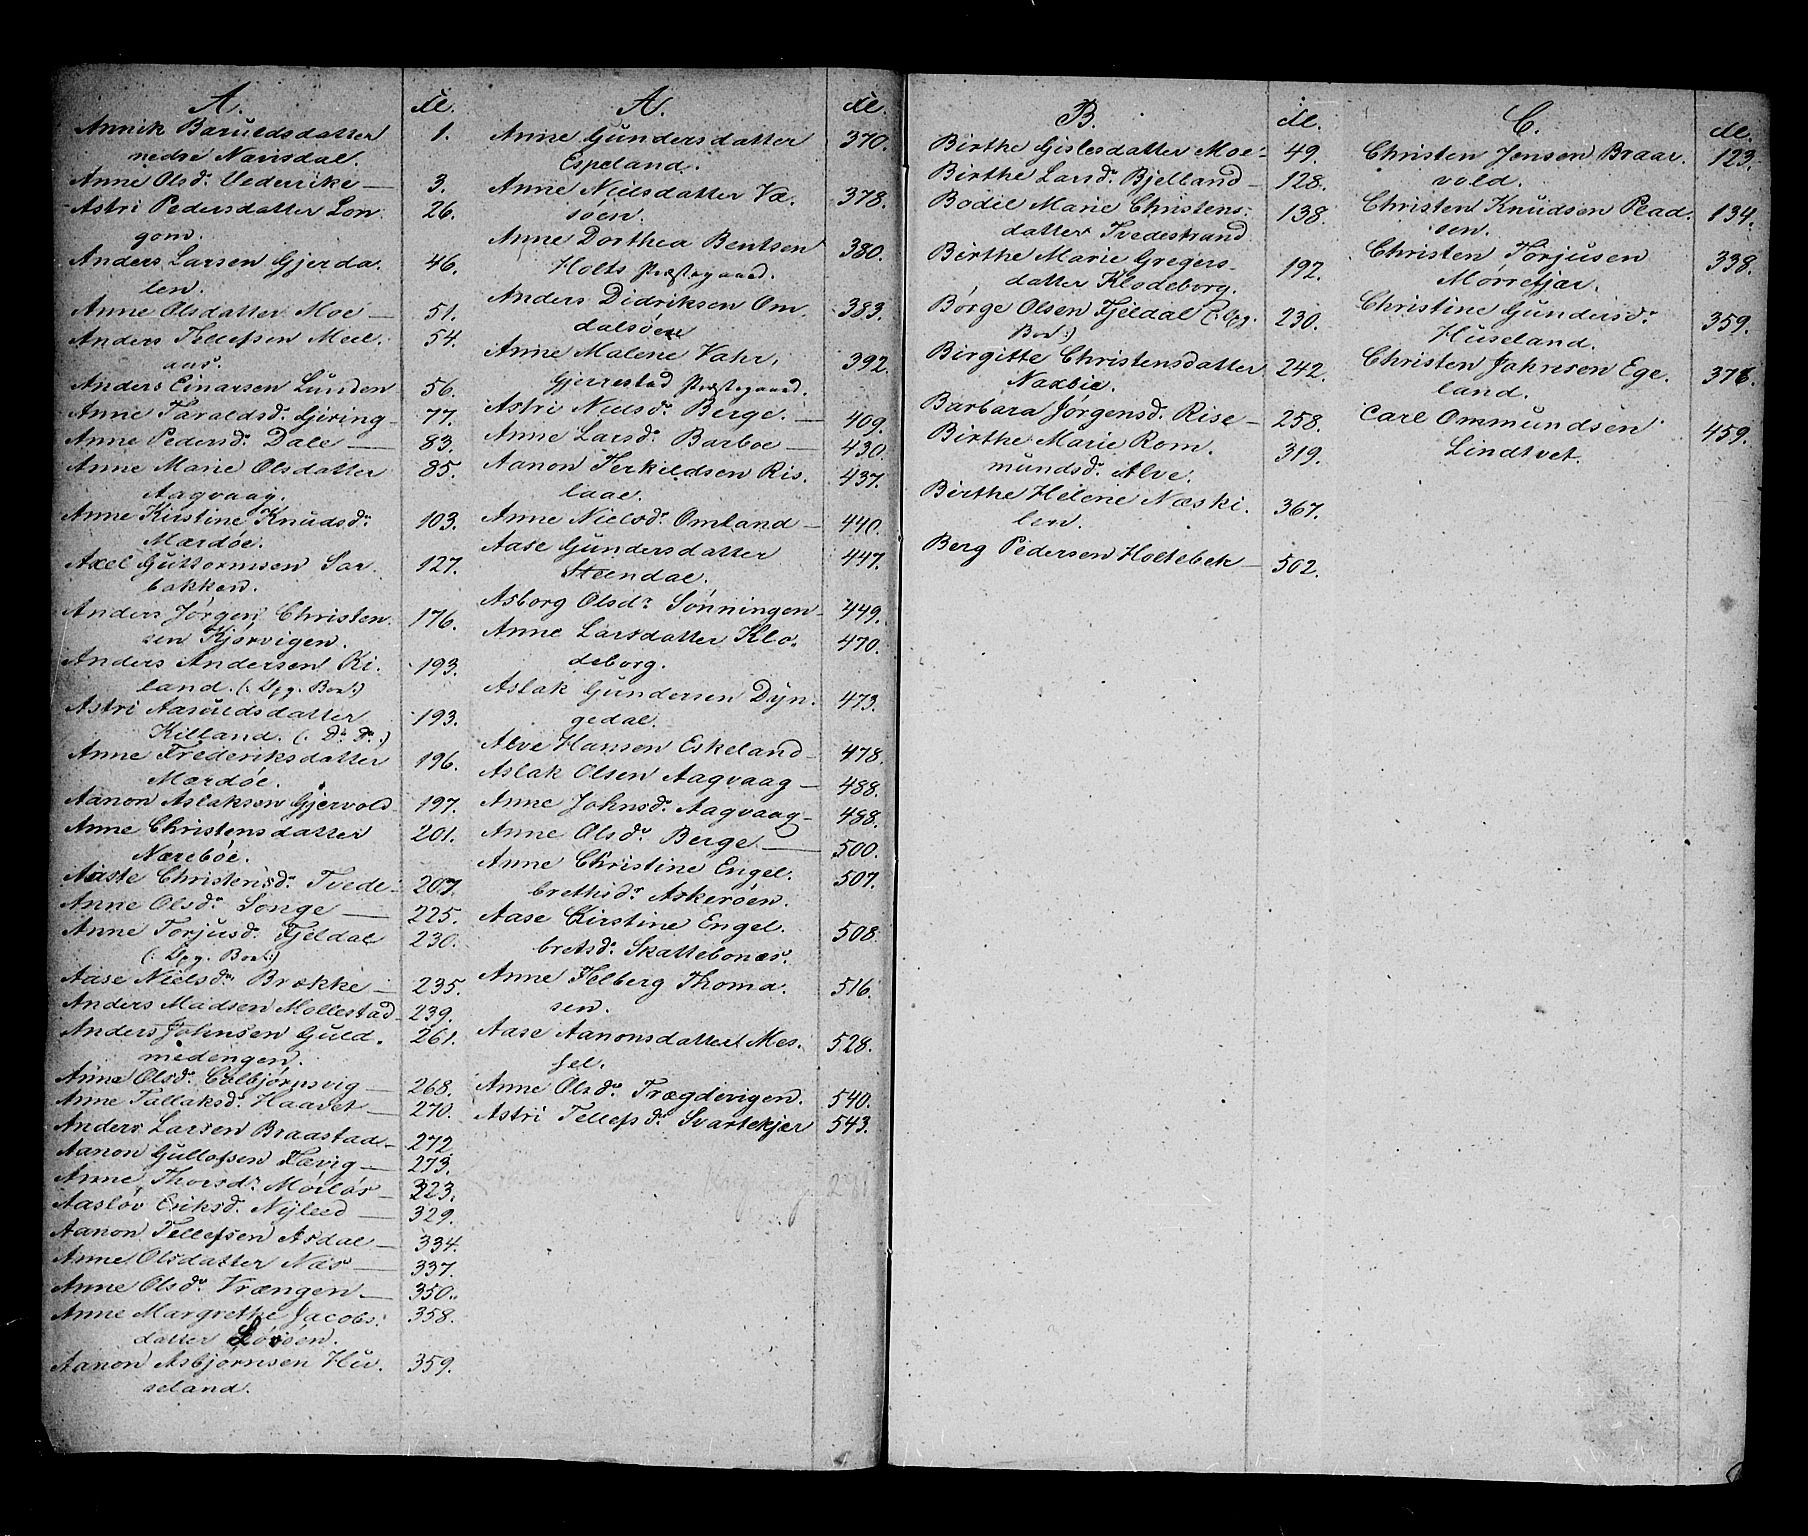 A. № 
Annik Baruldsdatter 1.
nedre Navisdal.
Anne Olsdr. Vederike — 3.
Astri Pedersdatter Lon 26.
gom.
Anders Larsen Gjerda. 46.
len.
Anne Olsdatter Moe — 51.
Anders Tellefsen Moel. 54.
aas.
Anders Einarsen Lunden 56.
Anne Taraldsdr. Gjering — 77.
Anne Pedersdr. Dale — 83.
Anne Marie Olsdatter 85.
Aagvaag.
Anne Kirstine Knudsdr. 103.
Mærdöe.
Axel Guttormsen Sar. 127.
bakken.
Anders Jörgen Christen 176.
sen Kjörvigen.
Anders Andersen Ki. 193.
land. (: Opg. Boe :)
Astri Aasuldsdatter 193.
Killand. (: Do. Do. :)
Anne Frederiksdatter 196.
Mærdöe.
Aanon Aslaksen Gjervold 197.
Anne Christensdatter 201.
Næreböe.
Aaste Christensdr. Tvede 207.
Anne Olsdr. Songe — 225.
Anne Torjusdr. Fjeldal 230.
(: Opg. Boe :)
Aase Nielsdr. Brække — 235.
Anders Madsen Mollestad 239.
Anders Johnsen Guld. 261.
medengen.
Anne Olsdr. Colbjörnsvig — 268.
Anne Tallaksdr. Haavet — 270.
Anders Larsen Braastad — 272.
Aanon Gullofsen Fævig — 273.
Anne Thorsdr. Mörlös — 323.
Aaslöv Eriksdr. Nyleed — 329.
Aanon Tellefsen Asdal — 334.
Anne Olsdatter Næs — 337.
Anne Olsdr. Vrængen — 350.
Anne Margrethe Jacobs. 358.
datter
Aanon Asbjörnsen Hu. 359.
seland.
A. №
Anne Gundersdatter 370.
Espeland.
Anne Nielsdatter Va. 378.
söen.
Anne Dorthea Bentsen 380.
Holts Præstegaard.
Anders Didriksen Om. 383.
dalsöen
Anne Malene Vahr, 392.
Gjerrestad Præstegaard.
Astri Nielsdr. Berge. — 409.
Anne Larsdr. Barboe — 430.
Aanon Terkildsen Ris. 437.
laae.
Anne Nielsdr. Omland — 440.
Aase Gundersdatter 447.
Steendal.
Asborg Olsdr. Sönningen 449.
Anne Larsdatter Klo. 470.
deborg.
Aslak Gundersen Dyn. 473.
gedal.
Alve Hansen Eskeland — 478.
Aslak Olsen Aagvaag — 488.
Anne Johnsdr. Aagvaag — 488.
Anne Olsdr. Berge — 500.
Anne Christine Engel. 507.
brethsdr. Askeröen.
Aase Kirstine Engel. 508.
bretsdr. Skattebonæs.
Anne Felberg Thoma. 516.
sen.
Aase Aanonsdatter Mes. 528.
sel.
Anne Olsdr. Trægdevigen. 540.
Astri Tellefsdr. Svartekjær 543.
281
B. №
Birthe Gislesdatter Moe — 49.
Birthe Larsdr. Bjelland — 128.
Bodil Marie Christens. 138.
datter Tvedestrand
Birthe Marie Gregers. 192.
datter Klodeborg.
Börge Olsen Fjeldal (: Opg. 230.
Boe :)
Birgitte Christensdatter 242.
Naxbie.
Barbara Jörgensdr. Rise — 258.
Birthe Marie Rom. 319.
mundsdr. Alve.
Birthe Helene Næski. 367.
len.
Berg Pedersen Holtebek — 502.
C. №
Christen Jensen Braar. 123.
vold.
Christen Knudsen Plad. 134.
sen.
Christen Torjusen 338.
Mörrefjær.
Christine Gundersdr. 359.
Huseland.
Christen Jahnsen Ege. 376.
land.
Carl Ommundsen 459.
Lindtvet.